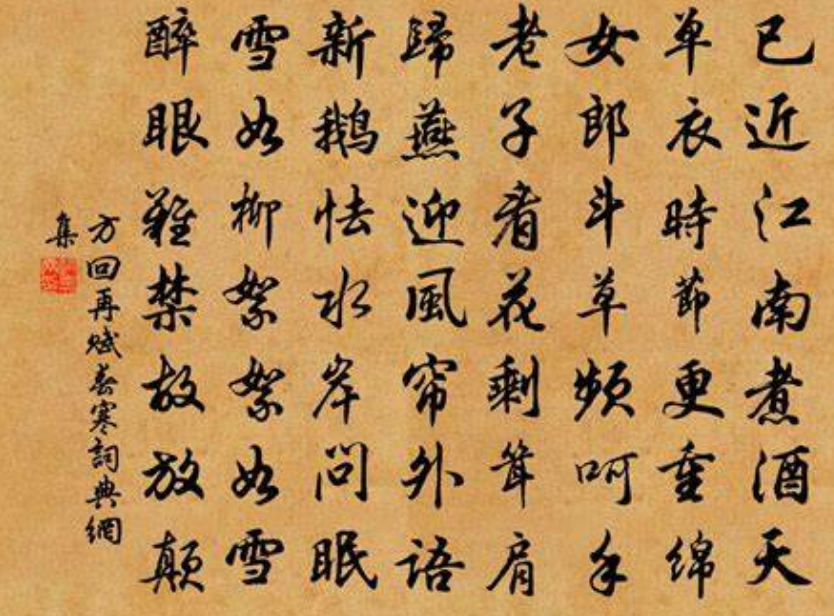 已近江南煮酒天
单衣時節更重绵
女郎斗草频呵手
老子看花剩耸肩
歸燕迎風帘外语
新鹅怯水岸问眠
雪如柳絮絮如雪
醉眼難禁故放颠
方回再赋春寒詞典網
集